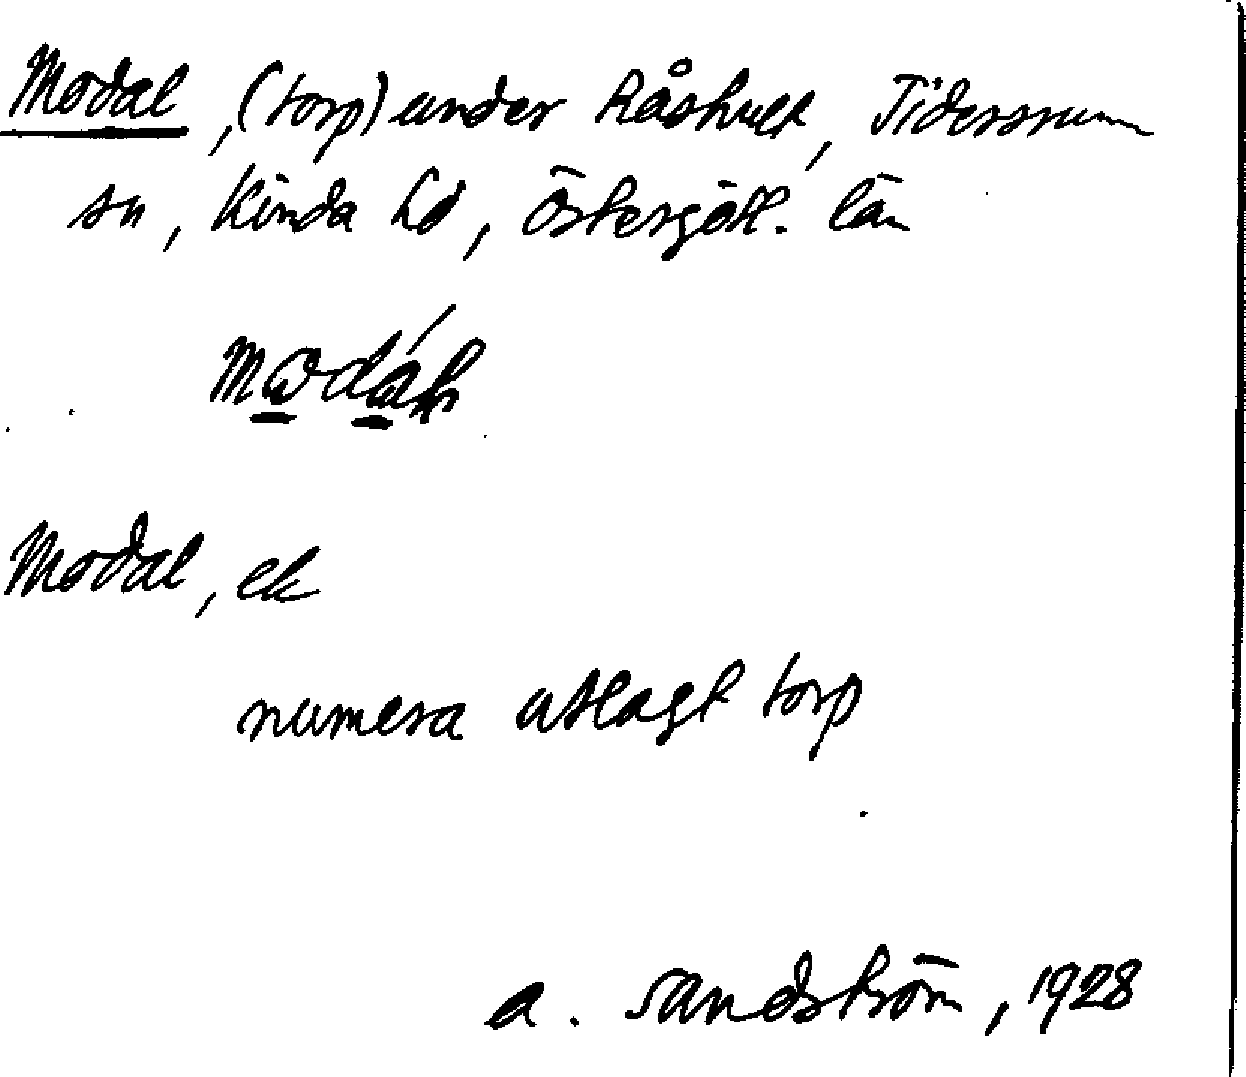 Modal, (torp) under Råshult, Tidersrum
sn, Kinda hd, Östergötl. län
Modal, ek
numera utlagt torp
A. Sandström, 1928